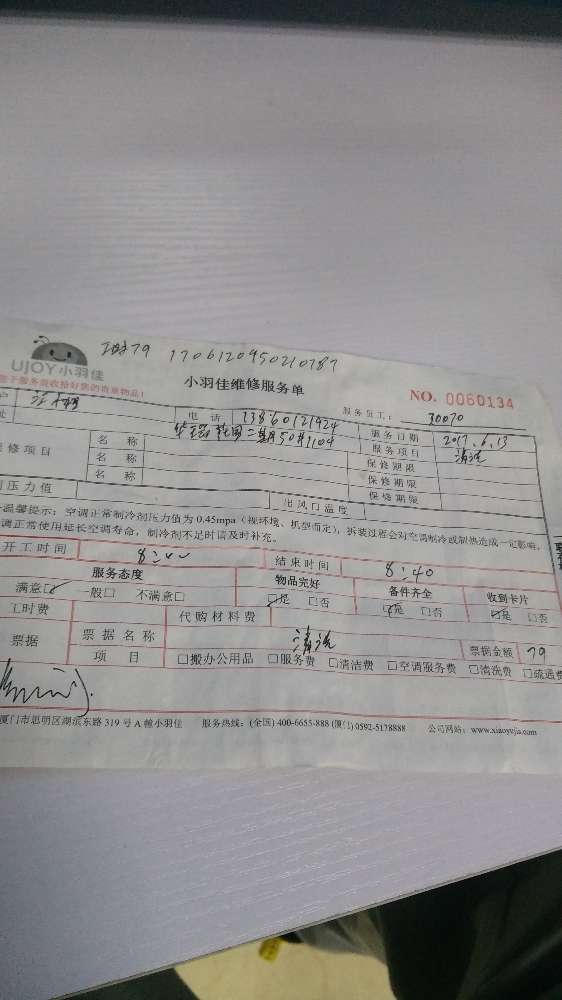 79 1706120950210787
UJOY小羽佳
小羽佳维修服务单
NO. 0060134
服务员工: 30070
电 话 13860121424 服务日期 2017.6.13
二期50#1104 服务项目 清洗
修项目 名 称 保修期限
名 称 保修期限
名 称 保修期限
压力值 出风口温度
温馨提示:空调正常制冷剂压力值为 0.45mpa(视环境、机型而定),拆装过程会对空调制冷或制热造成一定影响,
调正常使用延长空调寿命,制冷剂不足时请及时补充。
开工时间 8:00 结束时间 8:40
服务态度 物品完好 备件齐全 收到卡片
满意☑ 一般□ 不满意□ ☑是 □否 ☑是 □否 ☑是 □否
工时费 代购材料费
票据 票据名称 清洗 票据金额 79
项 目 □搬办公用品 □服务费 □清洁费 □空调服务费 □清洗费 □疏通费
厦门市思明区湖滨东路 319 号 A 幢小羽佳 服务热线:(全国) 400-6655-888 (厦门) 0592-5178888 公司网站:www.xiaoyujia.com